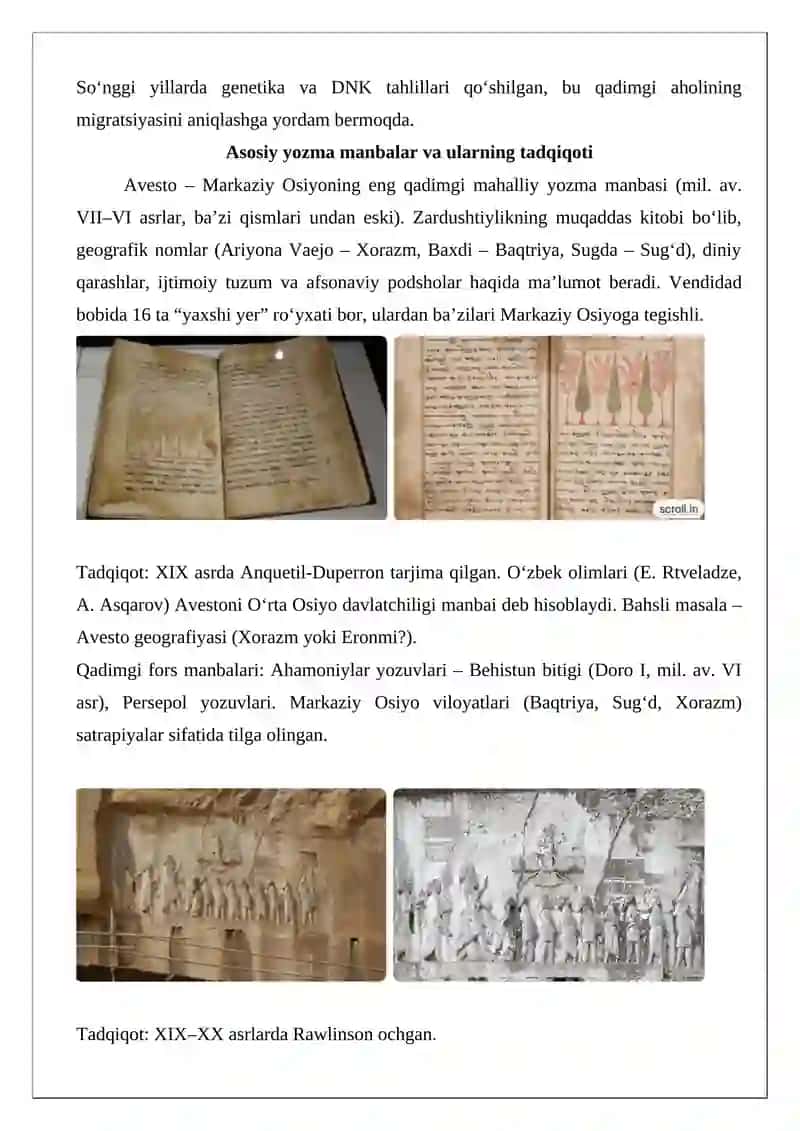 So‘nggi yillarda genetika va DNK tahlillari qo‘shilgan, bu qadimgi aholining
migratsiyasini aniqlashga yordam bermoqda.
Asosiy yozma manbalar va ularning tadqiqoti
Avesto – Markaziy Osiyoning eng qadimgi mahalliy yozma manbasi (mil. av.
VII–VI asrlar, ba’zi qismlari undan eski). Zardushtiylikning muqaddas kitobi bo‘lib,
geografik nomlar (Ariyona Vaejo – Xorazm, Baxdi – Baqtriya, Sugda – Sug‘d), diniy
qarashlar, ijtimoiy tuzum va afsonaviy podsholar haqida ma’lumot beradi. Vendidad
bobida 16 ta “yaxshi yer” ro‘yxati bor, ulardan ba’zilari Markaziy Osiyoga tegishli.
scroll.in
Tadqiqot: XIX asrda Anquetil-Duperron tarjima qilgan. O‘zbek olimlari (E. Rtveladze,
A. Asqarov) Avestoni O‘rta Osiyo davlatchiligi manbai deb hisoblaydi. Bahsli masala –
Avesto geografiyasi (Xorazm yoki Eronmi?).
Qadimgi fors manbalari: Ahamoniylar yozuvlari – Behistun bitigi (Doro I, mil. av. VI
asr), Persepol yozuvlari. Markaziy Osiyo viloyatlari (Baqtriya, Sug‘d, Xorazm)
satrapiyalar sifatida tilga olingan.
Tadqiqot: XIX–XX asrlarda Rawlinson ochgan.